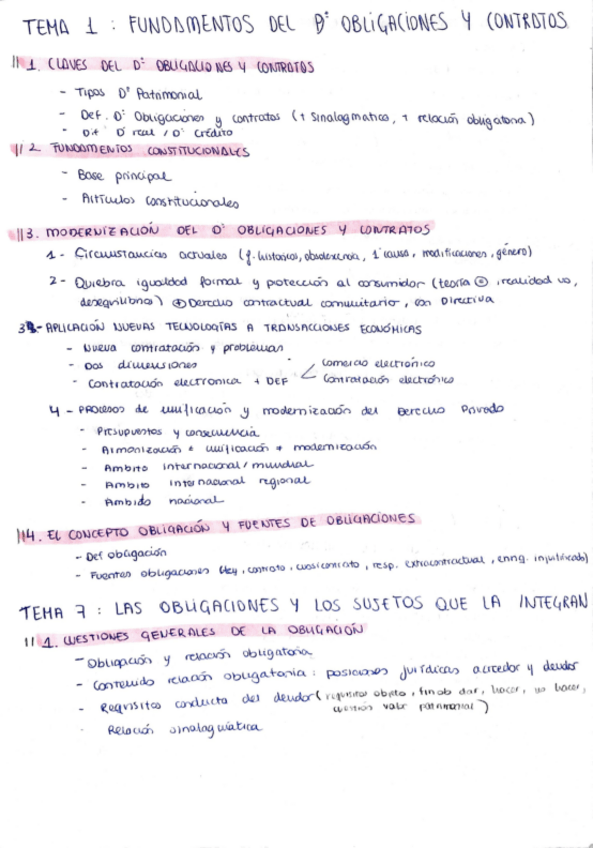 TEMA 1 : FUNDAMENTOS DEL Dº OBLIGACIONES Y CONTRATOS.
1. CLAVES DEL Dº OBLIGACIONES Y CONTRATOS
- Tipos Dº Patrimonial
- Def. Dº Obligaciones y contratos (+ Sinalagmatica, + relación obligatoria)
- Dif Dº real / Dº Crédito
2 FUNDAMENTOS CONSTITUCIONALES
- Base principal
- Artículos constitucionales
3. MODERNIZACIÓN DEL Dº OBLIGACIONES Y CONTRATOS
1 - Circunstancias actuales (f. historicos, obsolescencia, 1º causa, modificaciones, género)
2 - Quiebra igualdad formal y potección al consumidor (teoría, realidad no,
desequilibrios) Derecho contractual comunitario, con Directiva
3 - APLICACIÓN NUEVAS TECNOLOGÍAS A TRANSACCIONES ECONÓMICAS
- Nueva contratación y problemas
- Dos dimensiones
- Contratación electronica + DEF
Comercio electrónico
Contratación electrónica
4 - PROCESOS de unificación y modernización del Derecho Privado
- Presupuestos y consecuencia
- Armonización + unificación + modernización
- Ambito internacional / mundial
- Ambito internacional regional
- Ambido nacional
4. EL CONCEPTO OBLIGACIÓN Y FUENTES DE OBLIGACIONES
- Def obligación
- Fuentes obligaciones (ley, contrato, cuasicontrato, resp. extracontractual, enriq. injustificado)
TEMA 7 : LAS OBLIGACIONES Y LOS SUJETOS QUE LA INTEGRAN
1. CUESTIONES GENERALES DE LA OBLIGACIÓN
- Obligación y relación obligatoria
- Contenido relación obligatoria : posiciones jurídicas acreedor y deudor
- Requisitos conducta del deudor (requisitos objeto, fin ob dar, hacer, no hacer,
cuestión valor patrimonial)
- Relación sinalagmática